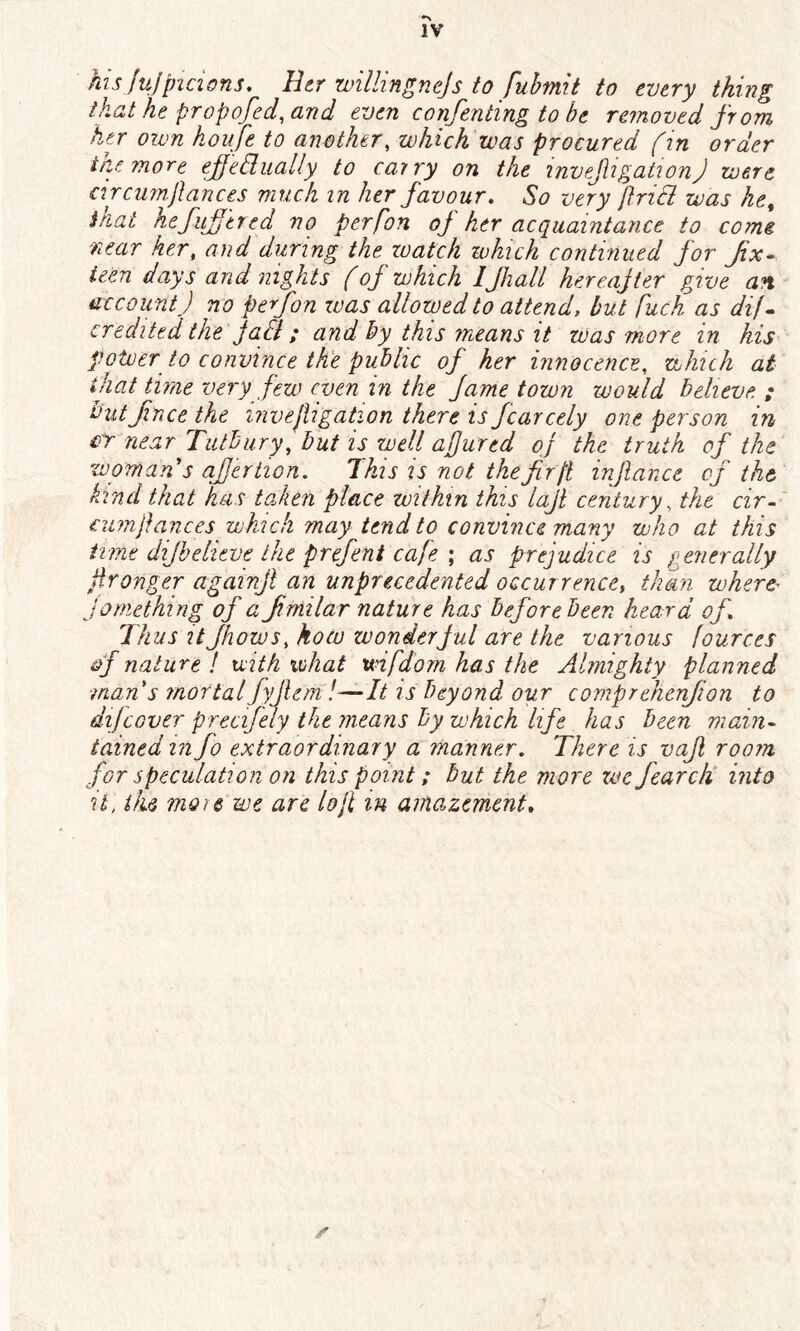 iv
his ſuſpicions. Her willingneſs to ſubmit to every thing
that he propoſed, and even conſenting to be removed from
her own houſe to another, which was procured (in order
the more effectually to carry on the inveſtigation) were
circumſtances much in her favour. So very ſtrict was he,
that he ſuffered no perſon of her acquaintance to come
near her, and during the watch which continued for ſix-
teen days and nights (of which I ſhall hereafter give an
account) no perſon was allowed to attend, but ſuch as diſ-
credited the fact; and by this means it was more in his
power to convince the public of her innocence, which at
that time very few even in the ſame town would believe;
but ſince the inveſtigation there is ſcarcely one person in
or near Tutbury, but is well aſſured of the truth of the
woman's aſſertion. This is not the firſt inſtance of the
kind that has taken place within this laſt century, the cir-
cumſtances which may tend to convince many who at this
time diſbelieve the preſent caſe ; as prejudice is generally
ſtronger againſt an unprecedented occurrence, than where
ſomething of a ſimilar nature has before been heard of.
Thus it ſhows, how wonderful are the various ſources
of nature ! with what wiſdom has the Almighty planned
man's mortal ſyſtem !—It is beyond our comprehenſion to
diſcover preciſely the means by which life has been main-
tained in ſo extraordinary a manner. There is vaſt room
for speculation on this point; but the more we ſearch into
it, the more we are loſt in amazement.